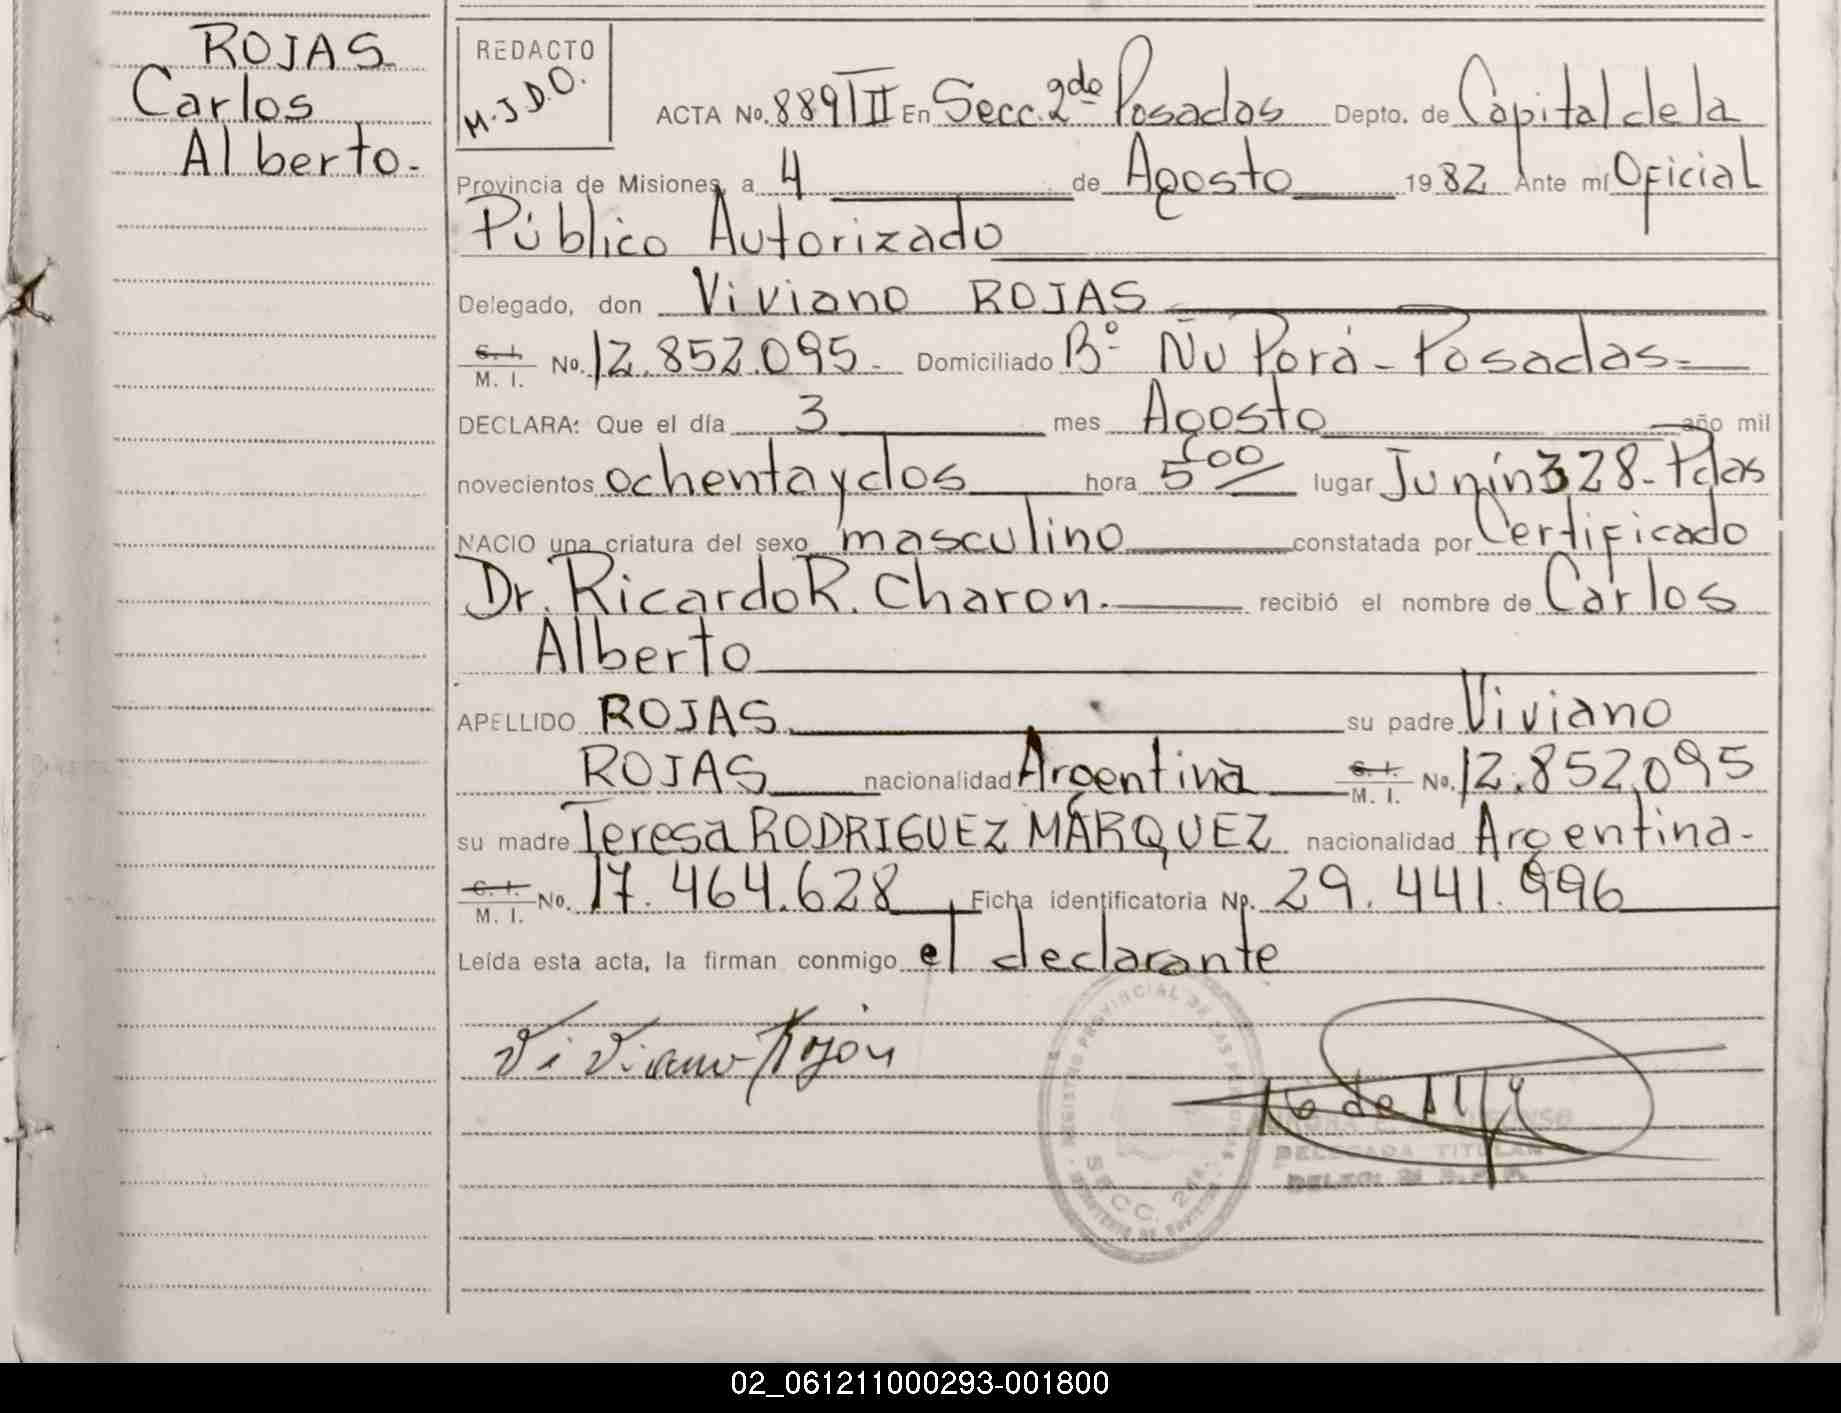 ROJAS
Carlos
Alberto.
REDACTO
M.J.D.O.
ACTA No. 889/III En Secc. 2da Posadas Depto. de Capital de la
Provincia de Misiones, a 4 de Agosto 1982 Ante mí Oficial
Público Autorizado
Delegado, don Viviano ROJAS
C. I. M. I. No. 12.852.095. Domiciliado Bº Ñu Porá - Posadas
DECLARA: Que el día 3 mes Agosto año mil
novecientos ochenta y dos hora 5 00 lugar Junín 328 - Pdas
NACIO una criatura del sexo masculino constatada por Certificado
Dr. Ricardo R. Charon. recibió el nombre de Carlos
Alberto
APELLIDO ROJAS su padre Viviano
ROJAS nacionalidad Argentina C. I. M. I. No. 12.852.095
su madre Teresa RODRIGUEZ MÁRQUEZ nacionalidad Argentina -
C. I. M. I. No. 17.464.628 Ficha identificatoria No. 29.441.996
Leída esta acta, la firman conmigo el declarante
Viviano Rojas
REGISTRO PROVINCIAL DE LAS PERSONAS
SECC. 2da.
DELEGADA TITULAR
02_061211000293-001800